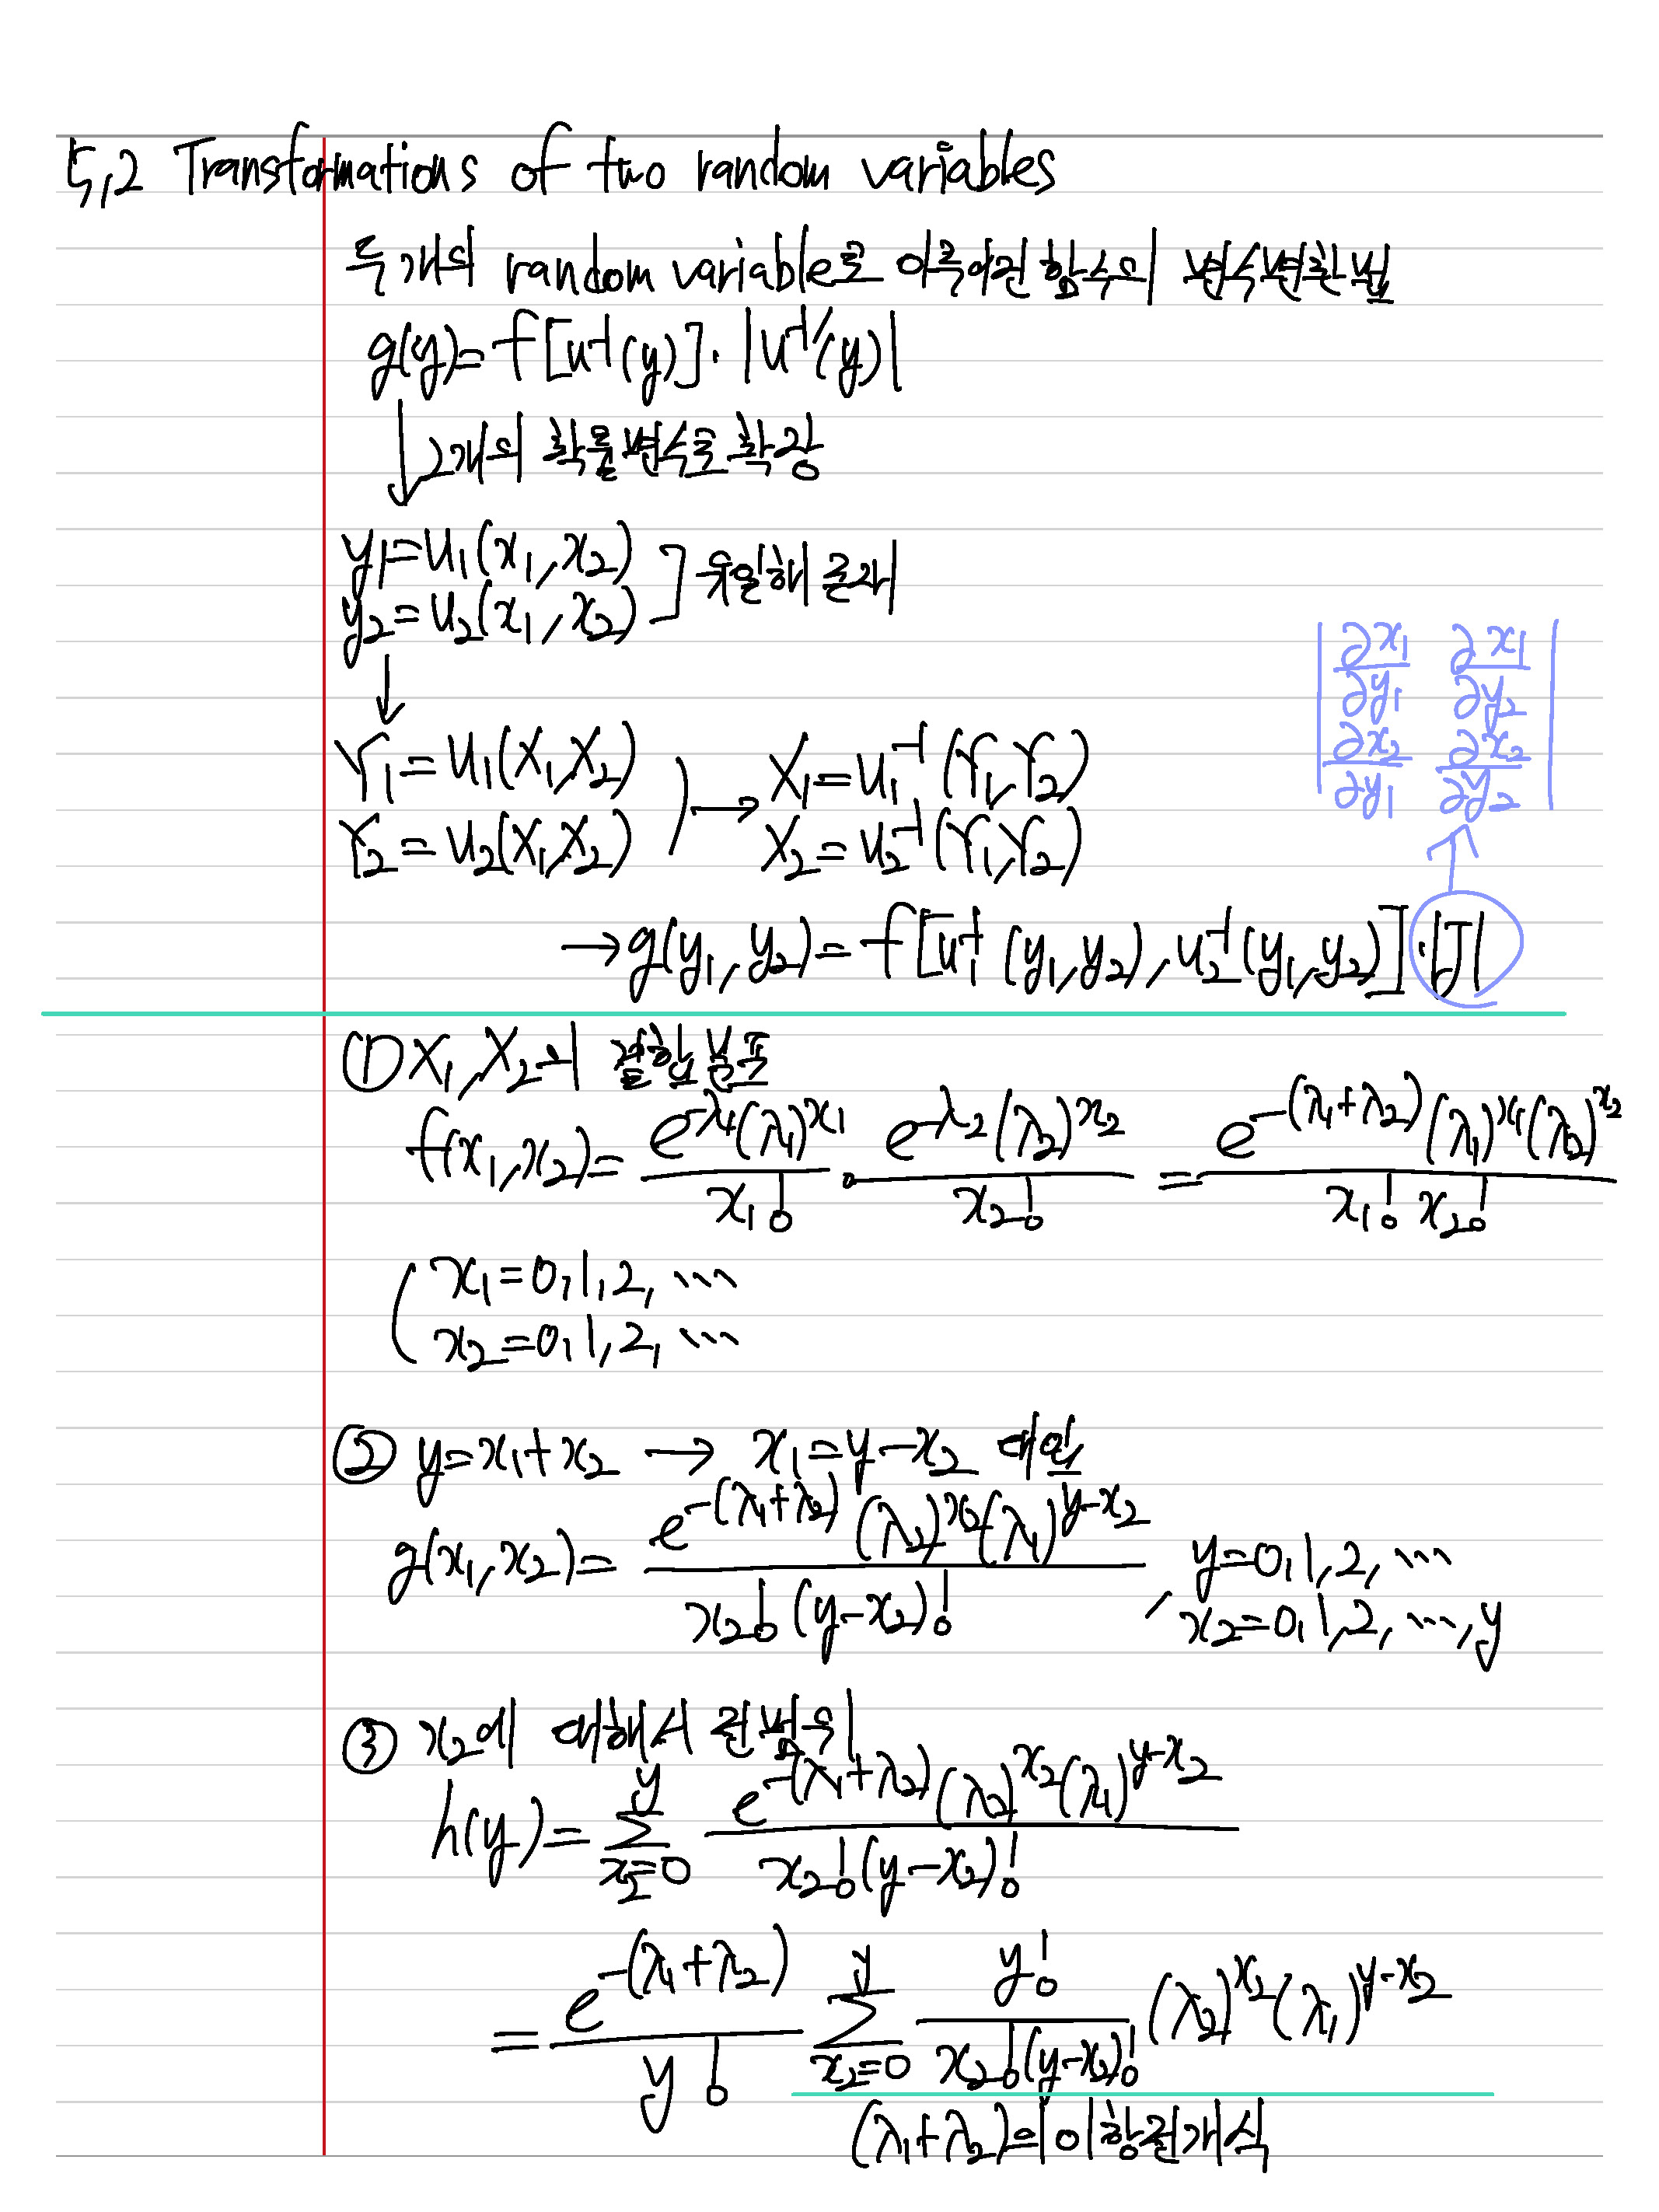 5.2 Transformations of two random variables
두개의 random variable로 이루어진 함수의 변수변환법
g(y)=f[u⁻¹(y)]·|u⁻¹′(y)|
↓ 2개의 확률변수로 확장
y₁=u₁(x₁,x₂)
y₂=u₂(x₁,x₂) ] 유일해 존재
↓
|∂x₁/∂y₁ ∂x₁/∂y₂|
|∂x₂/∂y₁ ∂x₂/∂y₂|
Y₁=u₁(X₁,X₂) ) → X₁=u₁⁻¹(Y₁,Y₂)
Y₂=u₂(X₁,X₂) X₂=u₂⁻¹(Y₁,Y₂)
→ g(y₁,y₂)=f[u₁⁻¹(y₁,y₂),u₂⁻¹(y₁,y₂)]·|J|
① X₁,X₂의 결합분포
f(x₁,x₂)= e^-λ₁(λ₁)^x₁ / x₁! · e^-λ₂(λ₂)^x₂ / x₂! = e^-(λ₁+λ₂)(λ₁)^x₁(λ₂)^x₂ / x₁! x₂!
( x₁=0,1,2,⋯
x₂=0,1,2,⋯
② y=x₁+x₂ → x₁=y-x₂ 대입
g(x₁,x₂)= e^-(λ₁+λ₂)(λ₂)^x₂(λ₁)^y-x₂ / x₂!(y-x₂)! , y=0,1,2,⋯
x₂=0,1,2,⋯,y
③ x₂에 대해서 전범위
h(y)= Σ_{x₂=0}^{y} e^-(λ₁+λ₂)(λ₂)^x₂(λ₁)^y-x₂ / x₂!(y-x₂)!
= e^-(λ₁+λ₂) / y! Σ_{x₂=0}^{y} y! / x₂!(y-x₂)! (λ₂)^x₂(λ₁)^y-x₂
(λ₁+λ₂)의 이항전개식